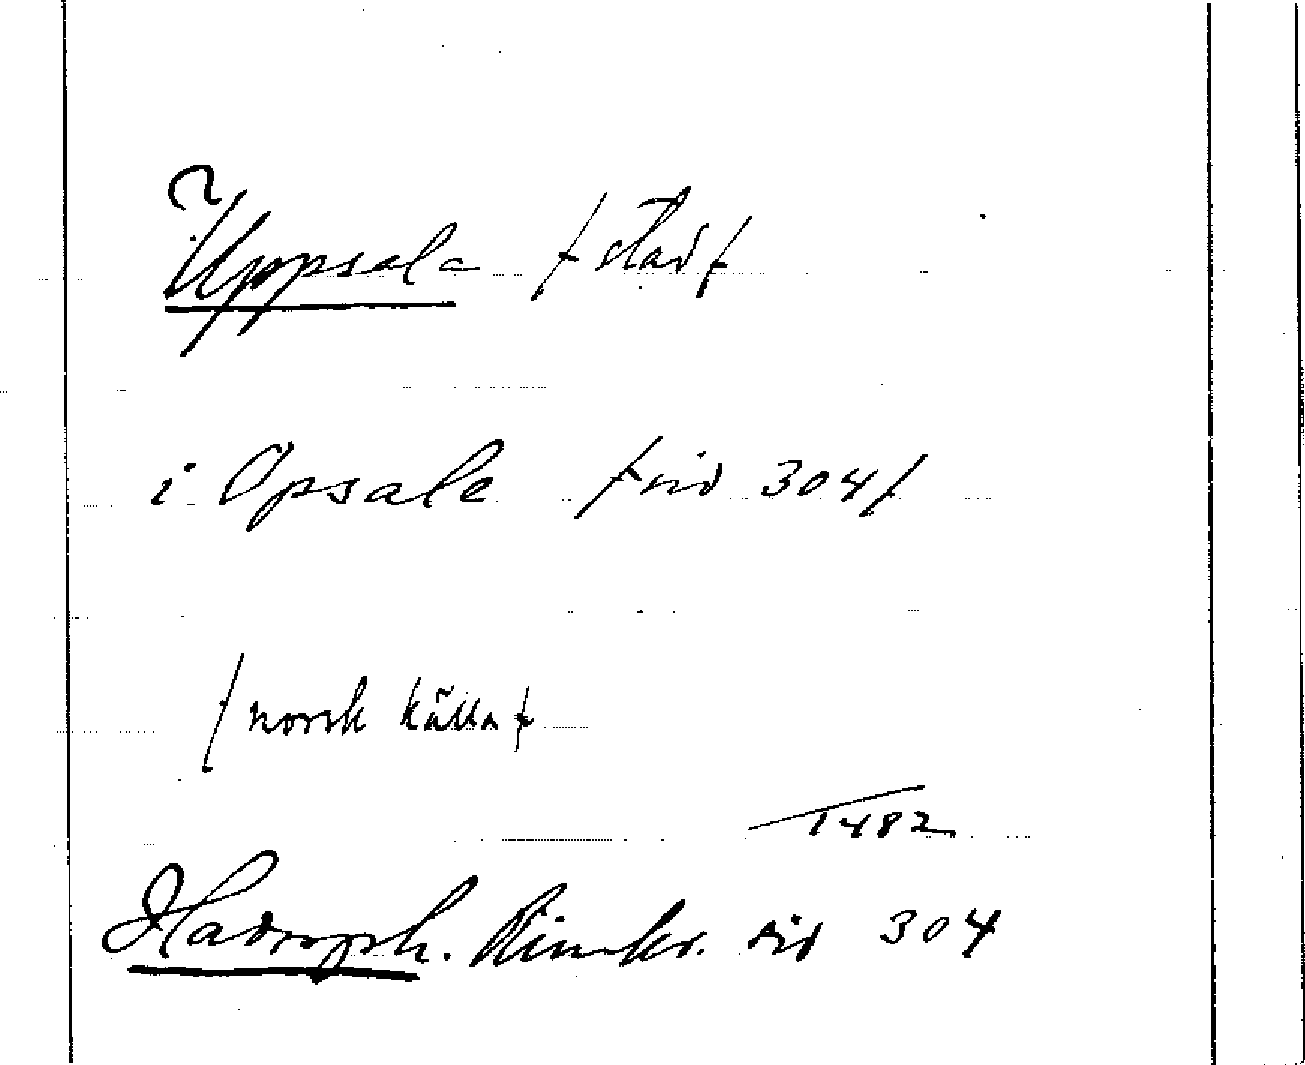 Uppsala /stad/
i Opsale /sid 304/
/norsk källa/
1482
Hadorph. Rimkr. sid 304